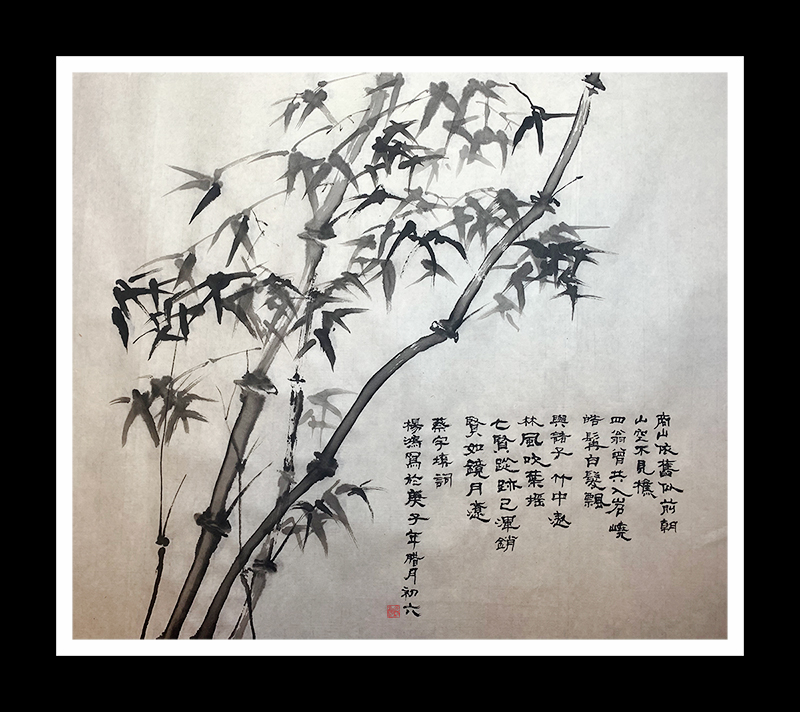 商山依舊似前朝
山空不見樵
四翁曾共入岩嶢
皓髯白髮飄
與諸子 竹中遨
林風吹葉搖
七賢蹤跡已渾銷
賢如鏡月遼
蔡宇填詞
楊鴻寫於庚子年臘月初六